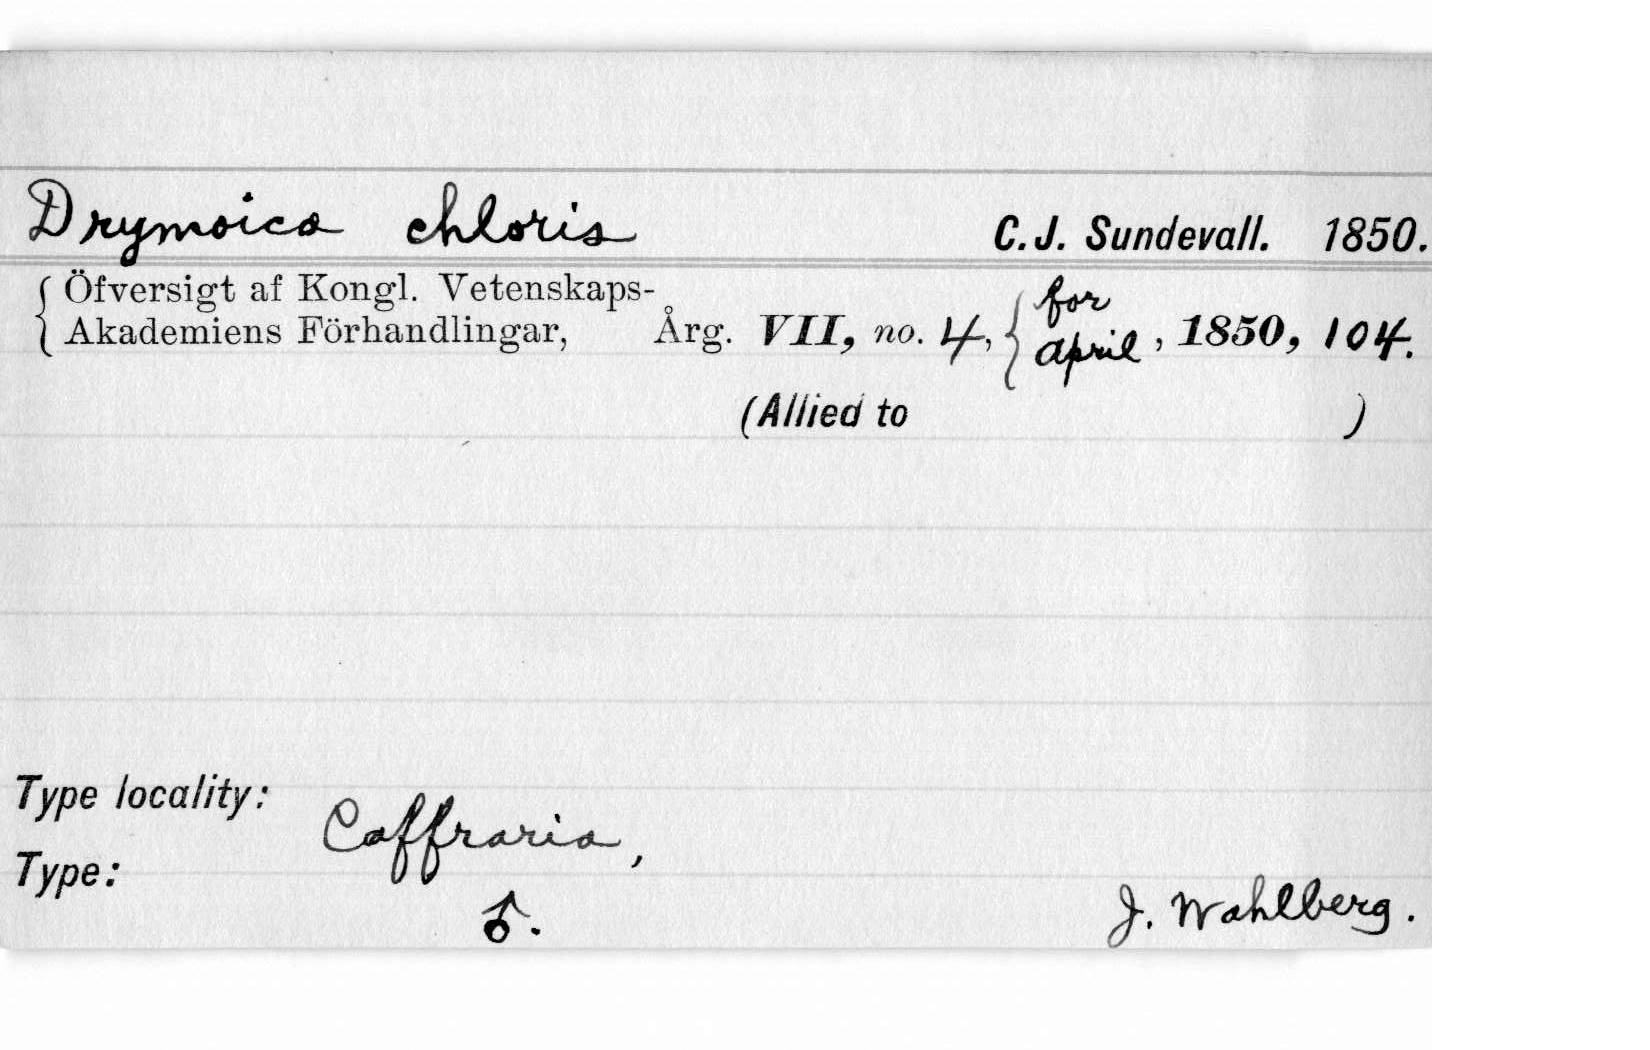 Drymoica chloris C.J. Sundevall. 1850.
{ Öfversigt af Kongl. Vetenskaps-
Akademiens Förhandlingar, Årg. VII, no. 4, { for April, 1850, 104.
(Allied to )
Type locality: Caffraria,
Type: ♂. J. Wahlberg.